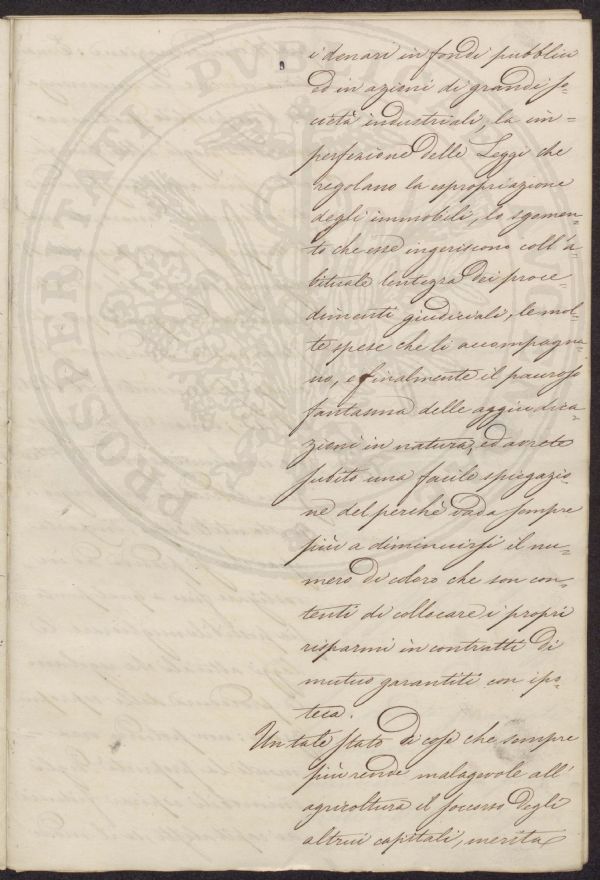 i denari in fondi pubblici
ed in azioni di grandi so-
cietà industriali, la im-
perfezione delle Leggi che
regolano la espropriazione
degli immobili, lo sgomen-
to che esse ingeriscono coll'a-
bituale lentezza dei proce-
dimenti giudiciali, le mol-
te spese che li accompagna-
no, e finalmente il pauroso
fantasma delle aggiudica-
zioni in natura, ed avrete
subito una facile spiegazio-
ne del perchè vada sempre
più a diminuirsi il nu-
mero di coloro che son con-
tenti di collocare i propri
risparmi in contratti di
mutuo garantiti con ipo-
teca.
Un tale stato di cose che sempre
più rende malagevole all'
agricoltura il soccorso degli
altrui capitali, merita
PROSPERITATI PVBLICAE